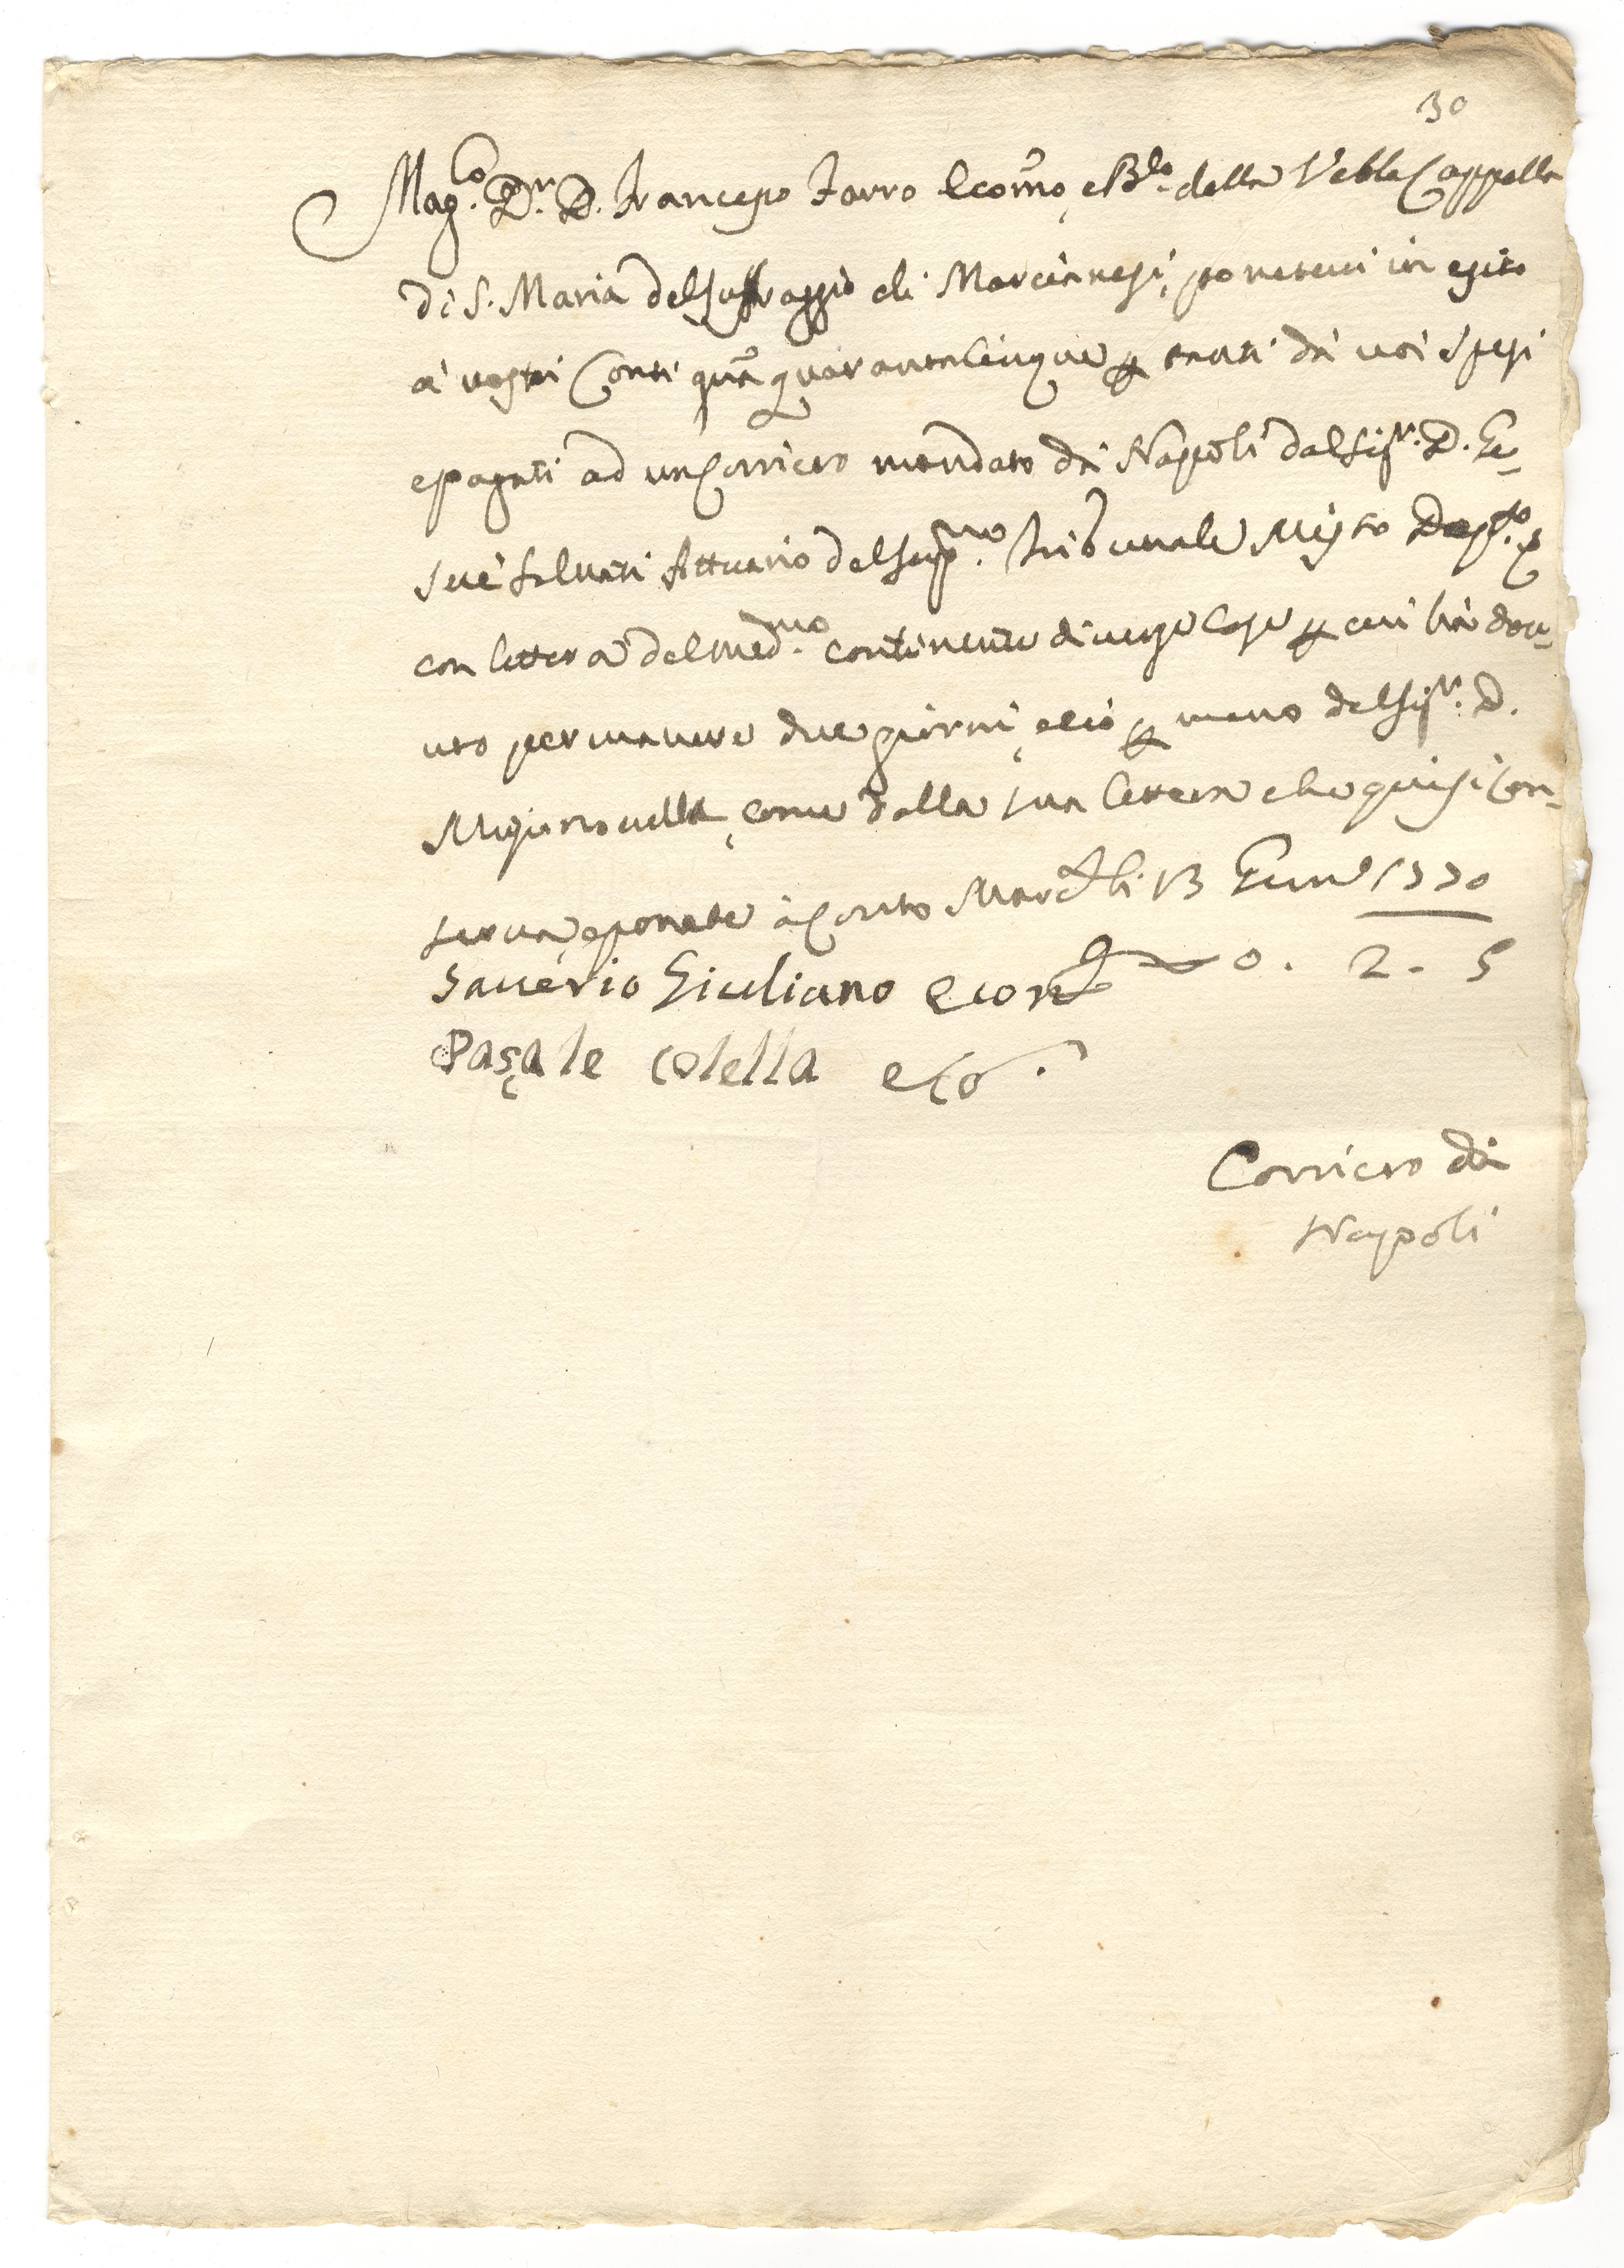 30
Mag.co D.r D. Francesco Farro Econ̄o, e B.lo della Veble Cappella
di S. Maria del Suffraggio di Marcianesi, ponetevi in esito
a' vostri Conti grā quarantacinque per tanti da voi spesi
e pagati ad un Corriero mandato da Napoli dal Sig.r D. Ge-
suè Salvati Attuario del Sup.mo Tribunale Misto
con lettera del med.mo continente diverse cose per cui hà dou-
uto permanere due giorni, e ciò per mano del Sig.r D.
come dalla sua lettera che qui si con-
serva, e ponete à Conto Marc.si li 13 Genn.o 1770
Saverio Giuliano Econ.o 0. 2. 5
Pasq̄ale Colella eco.
Corriero da
Napoli